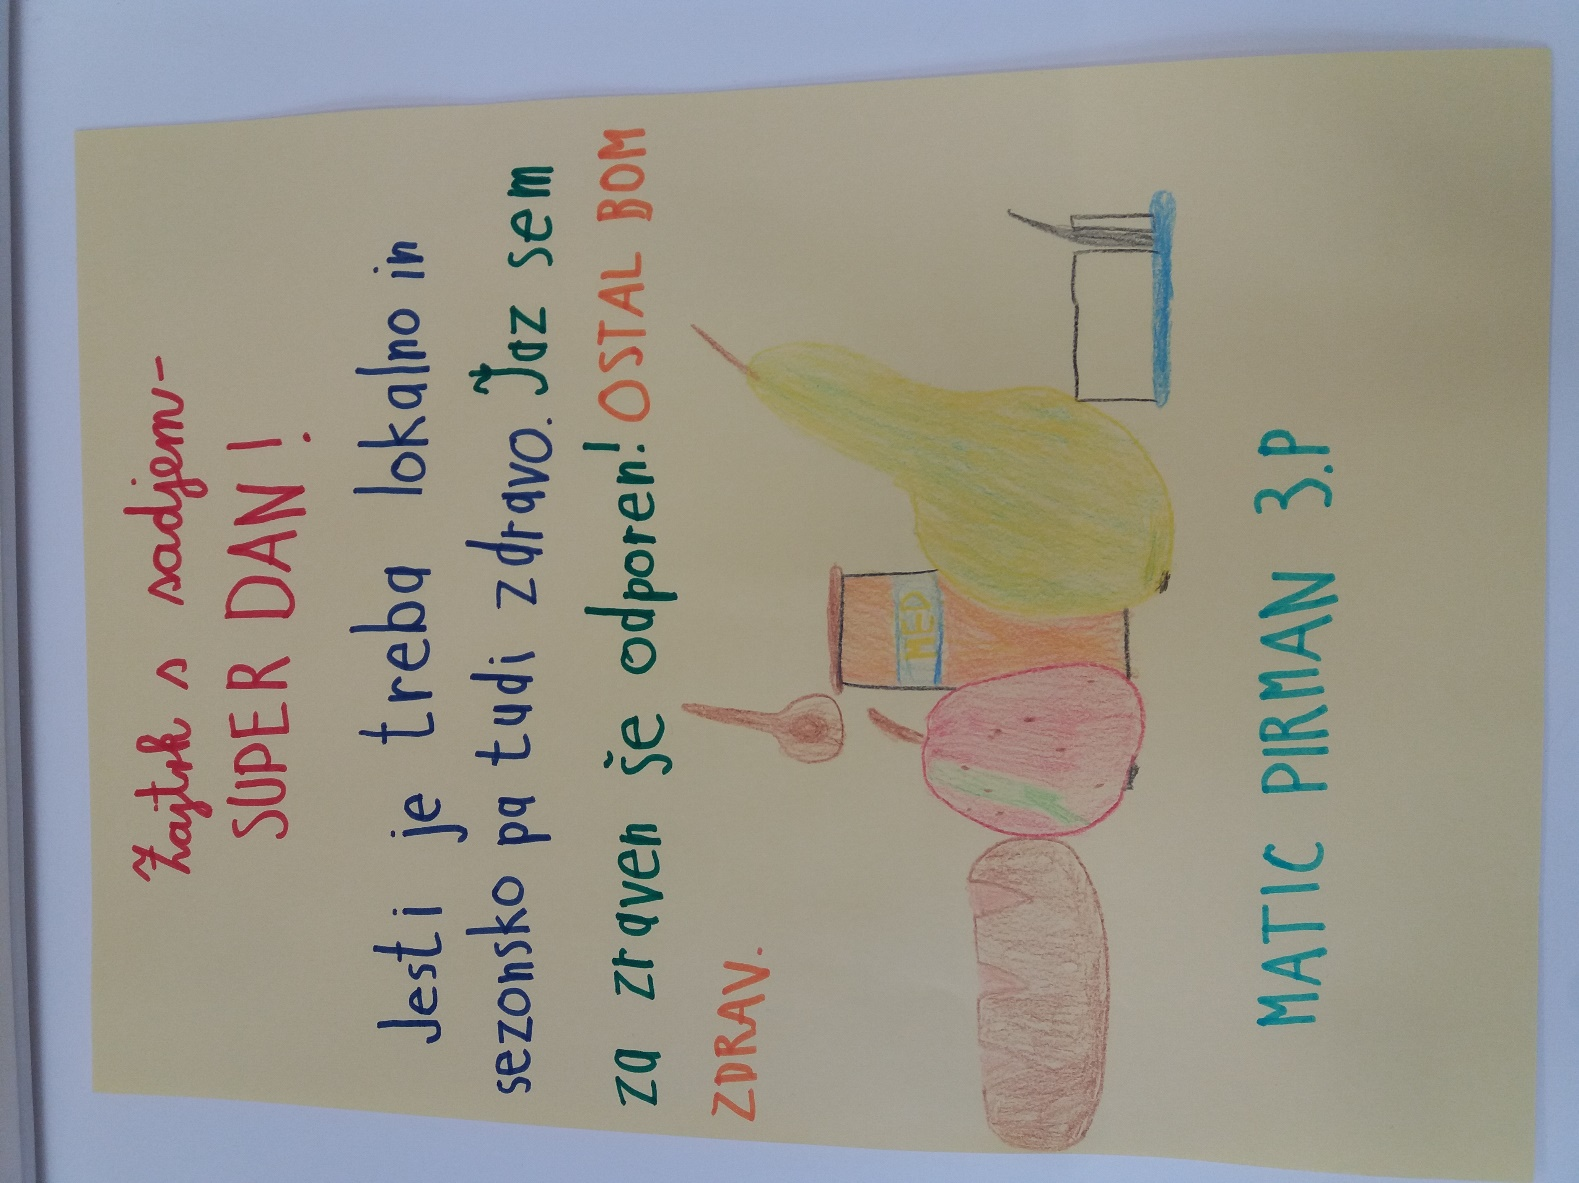 Zajtrk s sadjem-
SUPER DAN!
Jesti je treba lokalno in
sezonsko pa tudi zdravo. Jaz sem
za zraven še odporen! OSTAL BOM
ZDRAV.
MED
MATIC PIRMAN 3.P